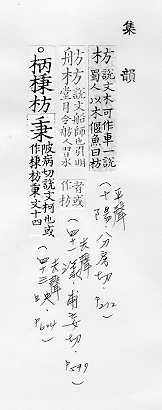 集韻
枋 說文木可作車一說
蜀人以木偃魚曰枋
平聲
(十陽·分房切·P.212)
舫枋 說文船師也引明
堂月令舫人習水
者或
作枋
去聲
(四十一漾·甫妄切·P.599)
。柄棅枋秉 陂病切說文柯也或
作棅枋秉文十四
去聲
(四十三映·